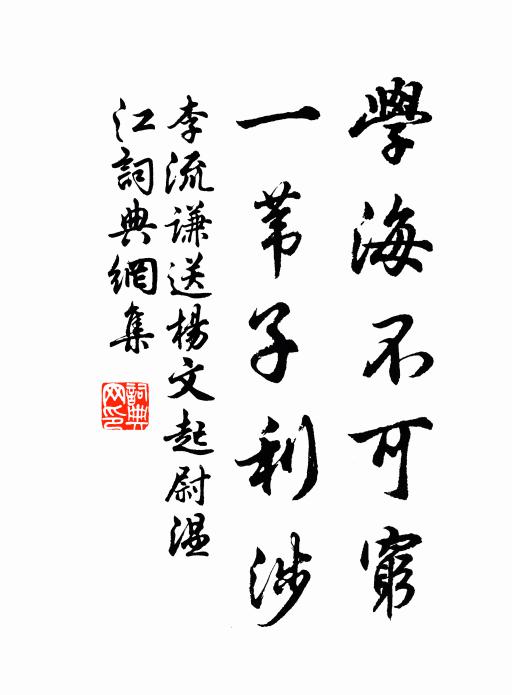 學海不可窮
一苇子利涉
李流謙送楊文起尉溫
江詞典網集
詞典網印